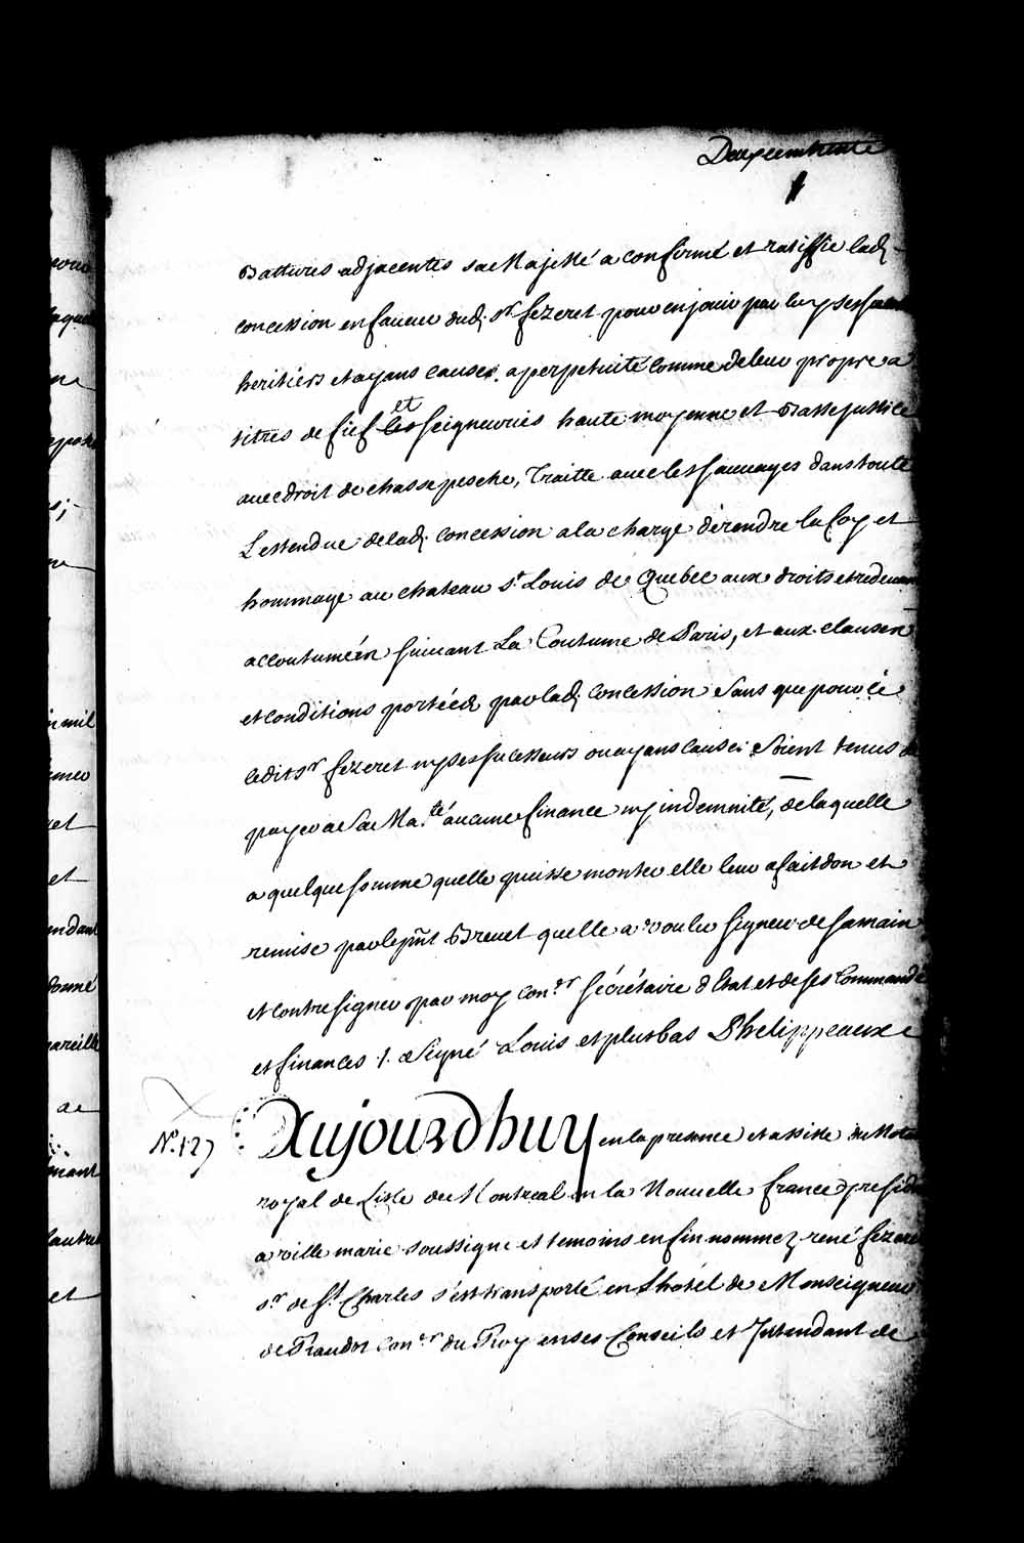 Deux cent trente
Battures adjacentes sa Majesté a confirmé et ratiffié lad.
concession en faueur dud. Sr. fezeret pour en jouir par luy ses
heritiers et ayans cause. a perpetuité comme de leur propre a
titres de fief et seigneuries haute moyenne et Basse justice
auec droit de chasse pesche, Traitte auec les sauuages dans toute
L'estendue de lad. concession a la charge de rendre la foy et
hommage au chateau St. Louis de Quebec aux droits et redeuan
accoutuméés suiuant La Coutume de Paris, et aux clauses
et conditions portéés par lad. concession sans que pour ce
ledit Sr. fezeret ny ses successeurs ou ayans cause soient tenus de
payer a Sa Ma.té aucune finance ny indemnité, de laquelle
a quelque somme quelle puisse monter elle leur a fait don et
remise par le pnt Breuet quelle a voulu signer de sa main
et contresigner par moy con.er sécrétaire d'Etat et de ses Commande
et finances ./. Signé Louis et plus bas Phelippeaux
N.127 Aujourdhuy en la presence et assiste du Nota
royal de L'isle de Montreal en la Nouuelle france
a ville marie soussigne et temoins en fin nommez rené fezere
Sr. de St. Charles s'est transporté en l'hotel de Monseigneur
de Raudot con.er du Roy en ses Conseils et Intendant de
eposé
in mil
et
et
endant
donné
pareille
de
l'autre
et